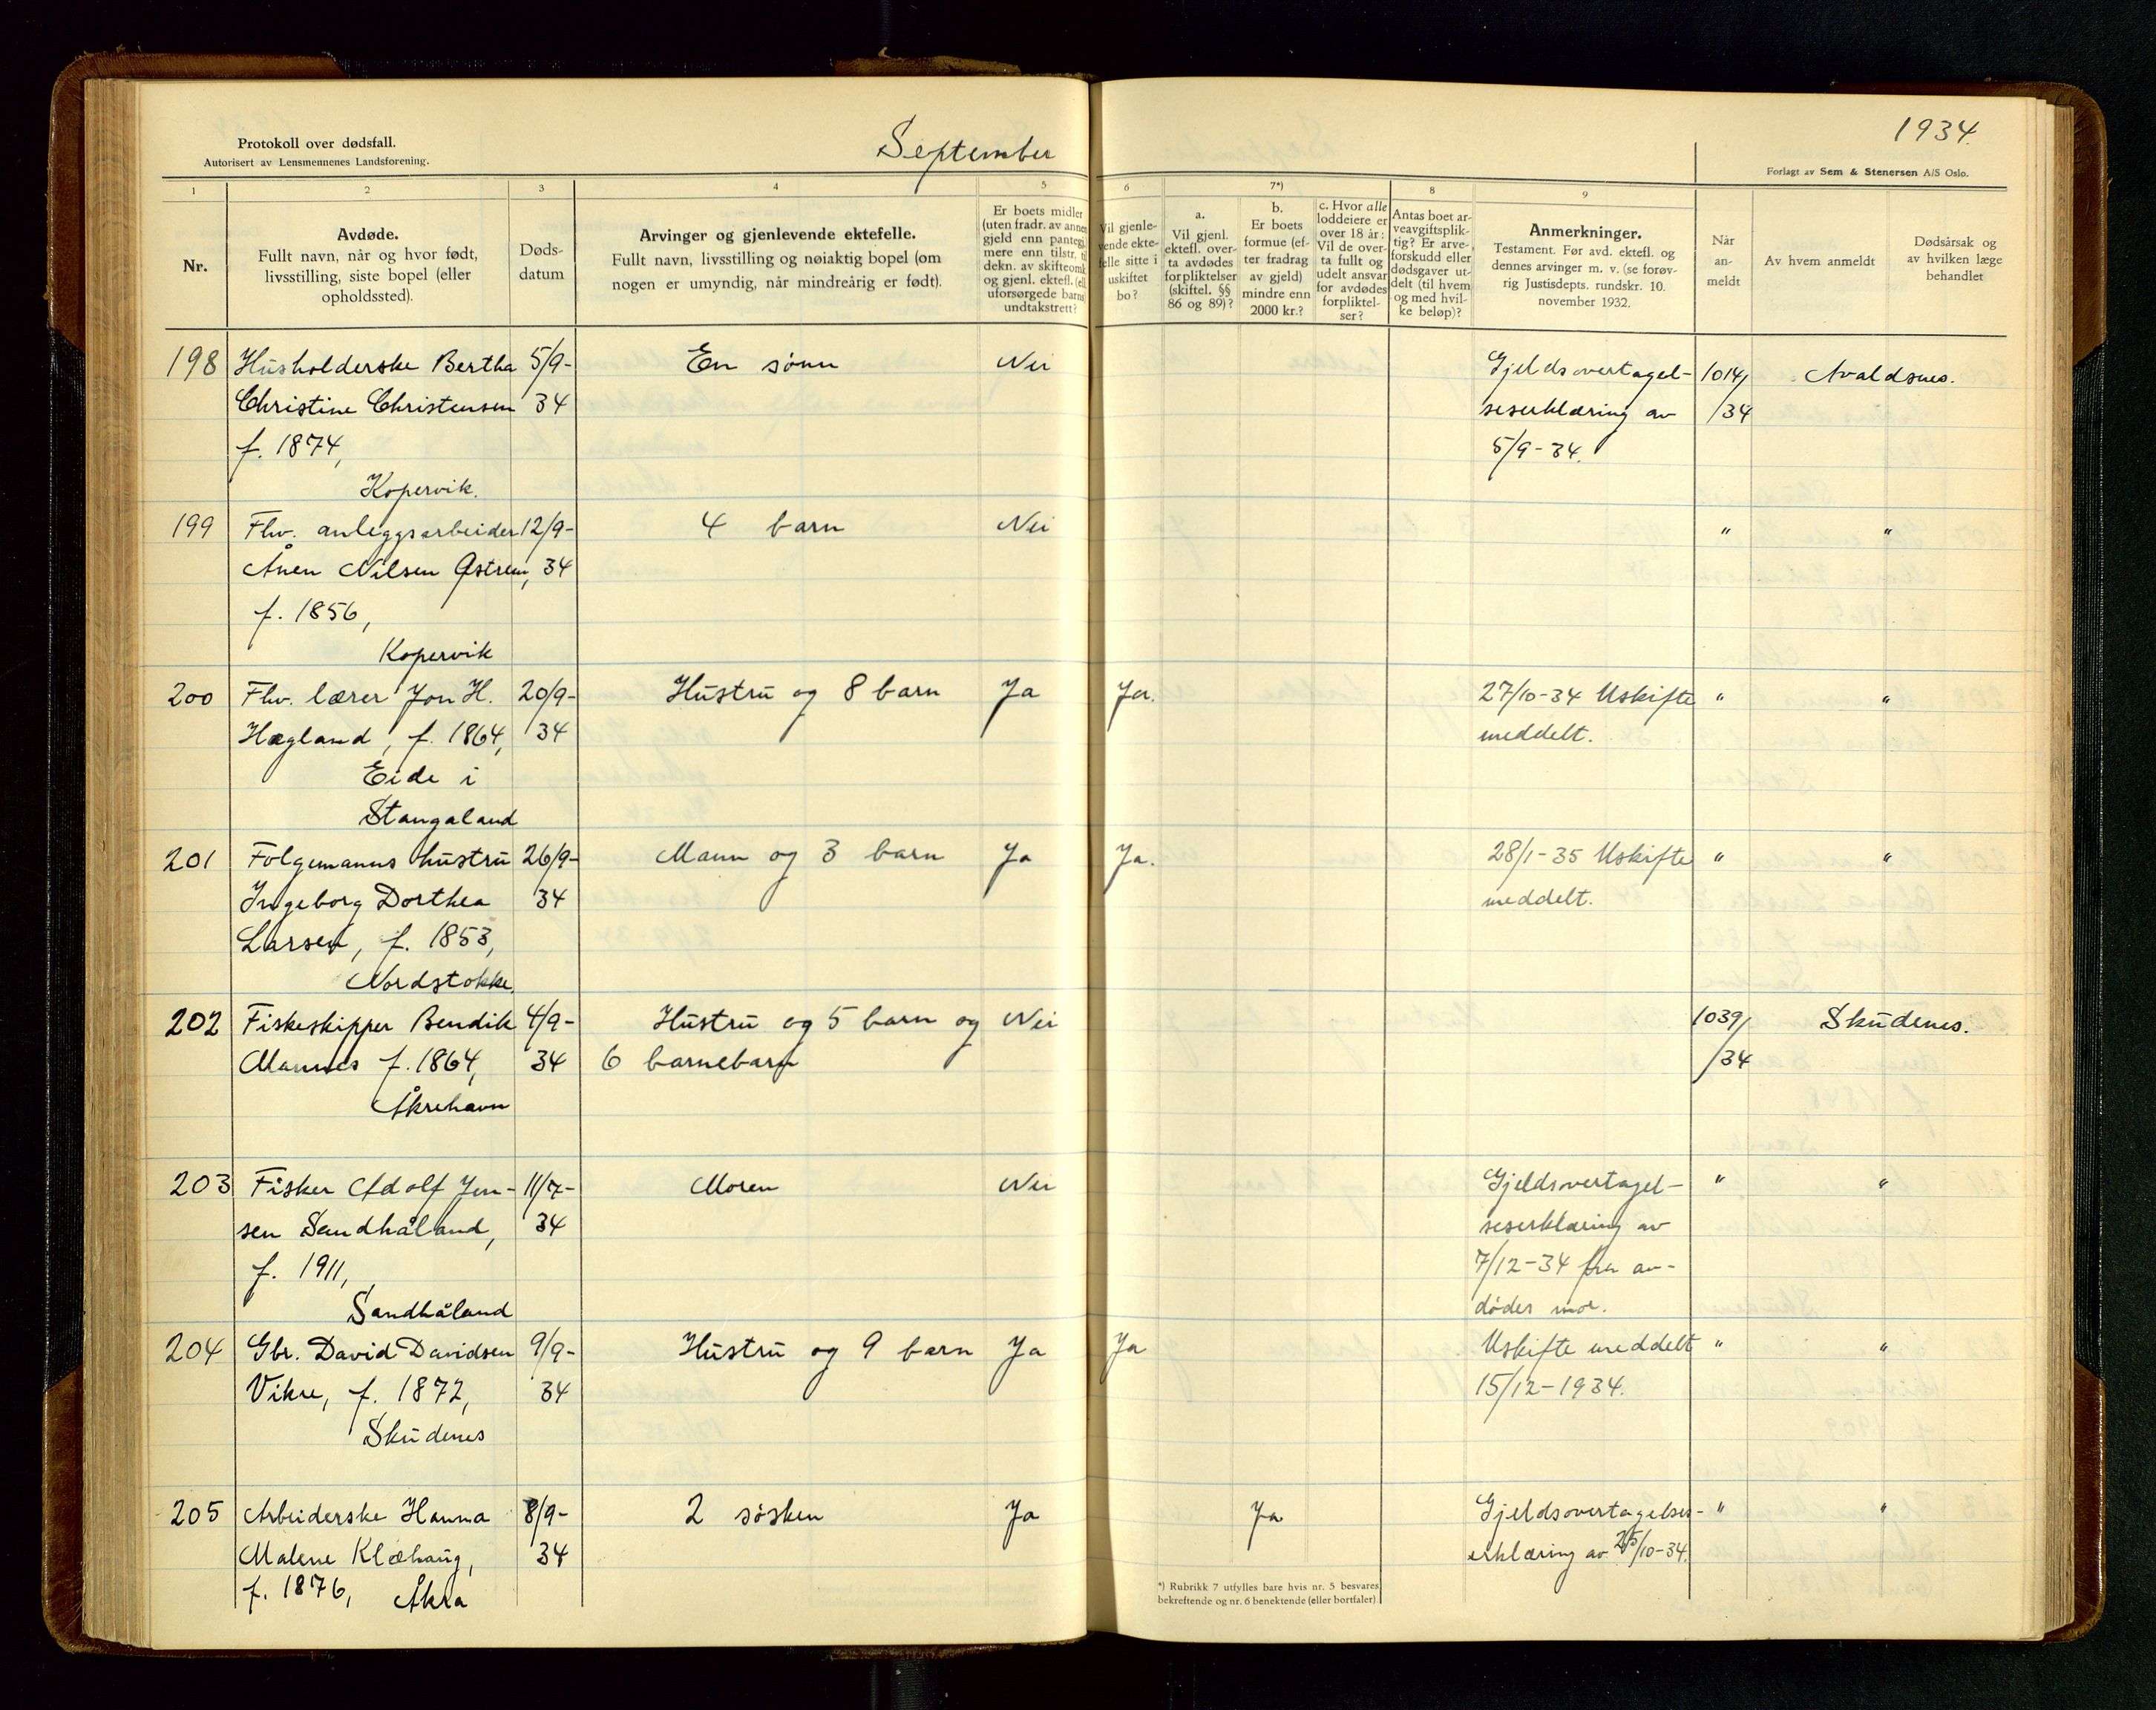 Protokoll over dødsfall.
Autorisert av Lensmennenes Landsforening.
September
1934.
Forlagt av Sem & Stenersen A/S Oslo.
1 2 3 4 5 6 7*) 8 9
Nr.
Avdøde.
Fullt navn, når og hvor født,
livsstilling, siste bopel (eller
opholdssted).
Døds-
datum
Arvinger og gjenlevende ektefelle.
Fullt navn, livsstilling og nøiaktig bopel (om
nogen er umyndig, når mindreårig er født).
Er boets midler
(uten fradr. av annen
gjeld enn pantegj.
mere enn tilstr. til
dekn. av skifteomk.
og gjenl. ektef. (el.
uforsørgede barns
undtakstrett?
Vil gjenle-
vende ekte-
felle sitte i
uskiftet
bo?
a.
Vil gjenl.
ektefl. over-
ta avdødes
forpliktelser
(skiftel. §§
86 og 89)?
b.
Er boets
formue (ef-
ter fradrag
av gjeld)
mindre enn
2000 kr.?
c. Hvor alle
loddeiere er
over 18 år:
Vil de over-
ta fullt og
udelt ansvar
for avdødes
forpliktel-
ser?
Antas boet ar-
veavgiftsplik-
tig? Er arve-
forskudd eller
dødsgaver ut-
delt (til hvem
og med hvil-
ke beløp)?
Anmerkninger.
Testament. Før avd. ektefl. og
dennes arvinger m. v. (se forøv-
rig Justisdepts. rundskr. 10.
november 1932.
Når
an-
meldt
Av hvem anmeldt
Dødsårsak og
av hvilken læge
behandlet
198 Husholderske Bertha 5/9- En sønn Nei Gjeldsovertagel- 1014/ Avaldsnes.
Christine Christensen 34 seserklæring av /34
f. 1874, 5/9-34.
Kopervik.
199 Fhv. anleggsarbeider 12/9- 4 barn Nei " "
Ånen Nilsen Østrem, 34
f. 1856,
Kopervik
200 Fhv. lærer Jon H. 20/9- Hustru og 8 barn Ja Ja. 27/10-34 Uskifte " "
Hægland, f. 1864, 34 meddelt.
Eide i
Stangaland
201 Folgemanns hustru 26/9- Mann og 3 barn Ja Ja. 28/1-35 Uskifte " "
Ingeborg Dorthea 34 meddelt.
Larsen, f. 1853,
Nordstokke.
202 Fiskeskipper Bendik 4/9- Hustru og 5 barn og Nei 1039/ Skudenes.
Mannes f. 1864, 34 6 barnebarn /34
Åkrehavn
203 Fisker Adolf Jen- 11/7- Moren Nei Gjeldsovertagel- " "
sen Sandhåland, 34 seserklæring av
f. 1911, 7/12-34 fra av-
Sandhåland dødes mor.
204 Gbr. David Davidsen 9/9- Hustru og 9 barn Ja Ja Uskifte meddelt " "
Vikre, f. 1872, 34 15/12-1934.
Skudenes
205 Arbeiderske Hanna 8/9- 2 søsken Ja Ja Gjeldsovertagelses- " "
Malene Klæhaug, 34 erklæring av 25/10-34.
f. 1876, Åkra
*) Rubrikk 7 utfylles bare hvis nr. 5 besvares
bekreftende og nr. 6 benektende (eller bortfaler)